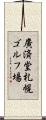 廣済堂札幌
ゴルフ場